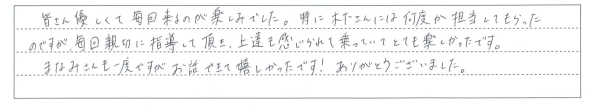 皆さん優しくて毎回来るのが楽しみでした。特に木下さんには何度か担当してもらった
のですが毎回親切に指導して頂き、上達も感じられて乗っていてとても楽しかったです。
まなみさんも一度ですがお話できて嬉しかったです！ありがとうございました。